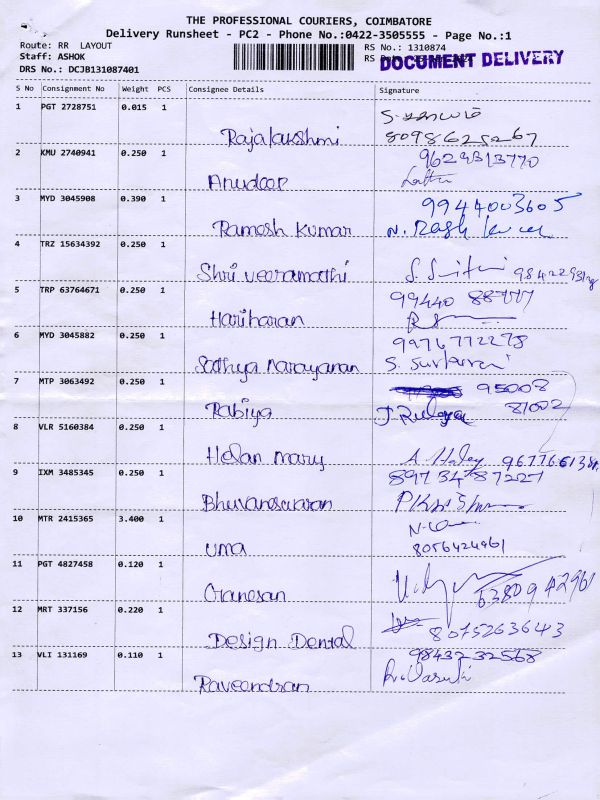 THE PROFESSIONAL COURIERS, COIMBATORE
Delivery Runsheet - PC2 - Phone No.:0422-3505555 - Page No.:1
Route: RR LAYOUT
RS No.: 1310874
Staff: ASHOK
RS
DOCUMENT DELIVERY
DRS No.: DCJB131087401
S No Consignment No Weight PCS Consignee Details Signature
1 PGT 2728751 0.015 1
Rajalakshmi 8098625267
2 KMU 2740941 0.250 1 9629313770
Anudeep Latha
3 MYD 3045908 0.390 1 9944003605
Ramesh Kumar N.
4 TRZ 15634392 0.250 1
Shri veeramathi S.
5 TRP 63764671 0.250 1 99440 88777
Hariharan
6 MYD 3045882 0.250 1 9976772278
Sathya Narayanan S.
7 MTP 3063492 0.250 1 95008
Rabiya 81002
8 VLR 5160384 0.250 1
Helan mary A.
9 IXM 3485345 0.250 1 89734 87227
Bhuvaneswaran
10 MTR 2415365 3.400 1
uma 8056424961
11 PGT 4827458 0.120 1
Ganesan 6380942961
12 MRT 337156 0.220 1
Design Dental 8075263643
13 VLI 131169 0.110 1 9843232568
Raveendran R. Vasuki